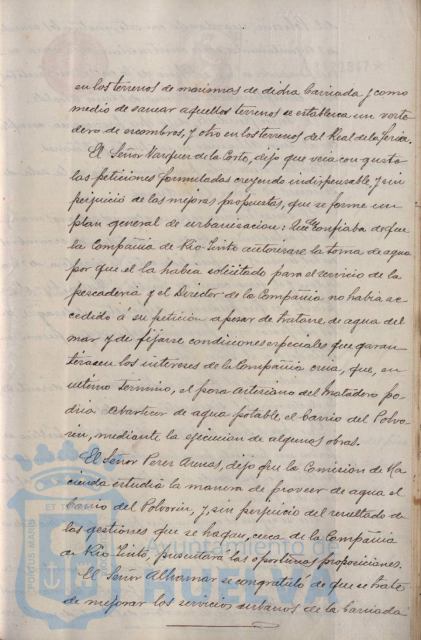 en los terrenos de marismas de dicha barriada y como
medio de sanear aquellos terrenos se establezca un verte
dero de escombros, y otro en los terrenos del Real de la Feria.
El Señor Vazquez de la Corte, dijo que veia con gusto
las peticiones formuladas creyendo indispensable, y sin
perjuicio de las mejoras propuestas, que se forme un
plan general de urbanizacion; que confiaba de que
la Compañia de Rio-Tinto autorizase la toma de agua
por que el la habia solicitado para el servicio de la
pescaderia y el Director de la Compañia no habia ac
cedido á su peticion a pesar de tratarse de agua del
mar y de fijarse condiciones especiales que garan
tizasen los intereses de la Compañia creia, que, en
ultimo termino, el pozo artesiano del Matadero po
dria abastecer de agua potable el barrio del Polvo
rin, mediante la ejecucion de algunas obras.
El Señor Perez Armas, dijo que la Comision de Ha
cienda estudia la manera de proveer de agua el
barrio del Polvorin, y, sin perjuicio del resultado de
las gestiones que se hagan, cerca de la Compañia
de Rio Tinto, presentará las oportunas proposiciones.
El Señor Albornar se congratuló de que se trate
de mejorar los servicios urbanos de la barriada
Ayuntamiento de
HUELVA
PORTUS MARIS
ET TE